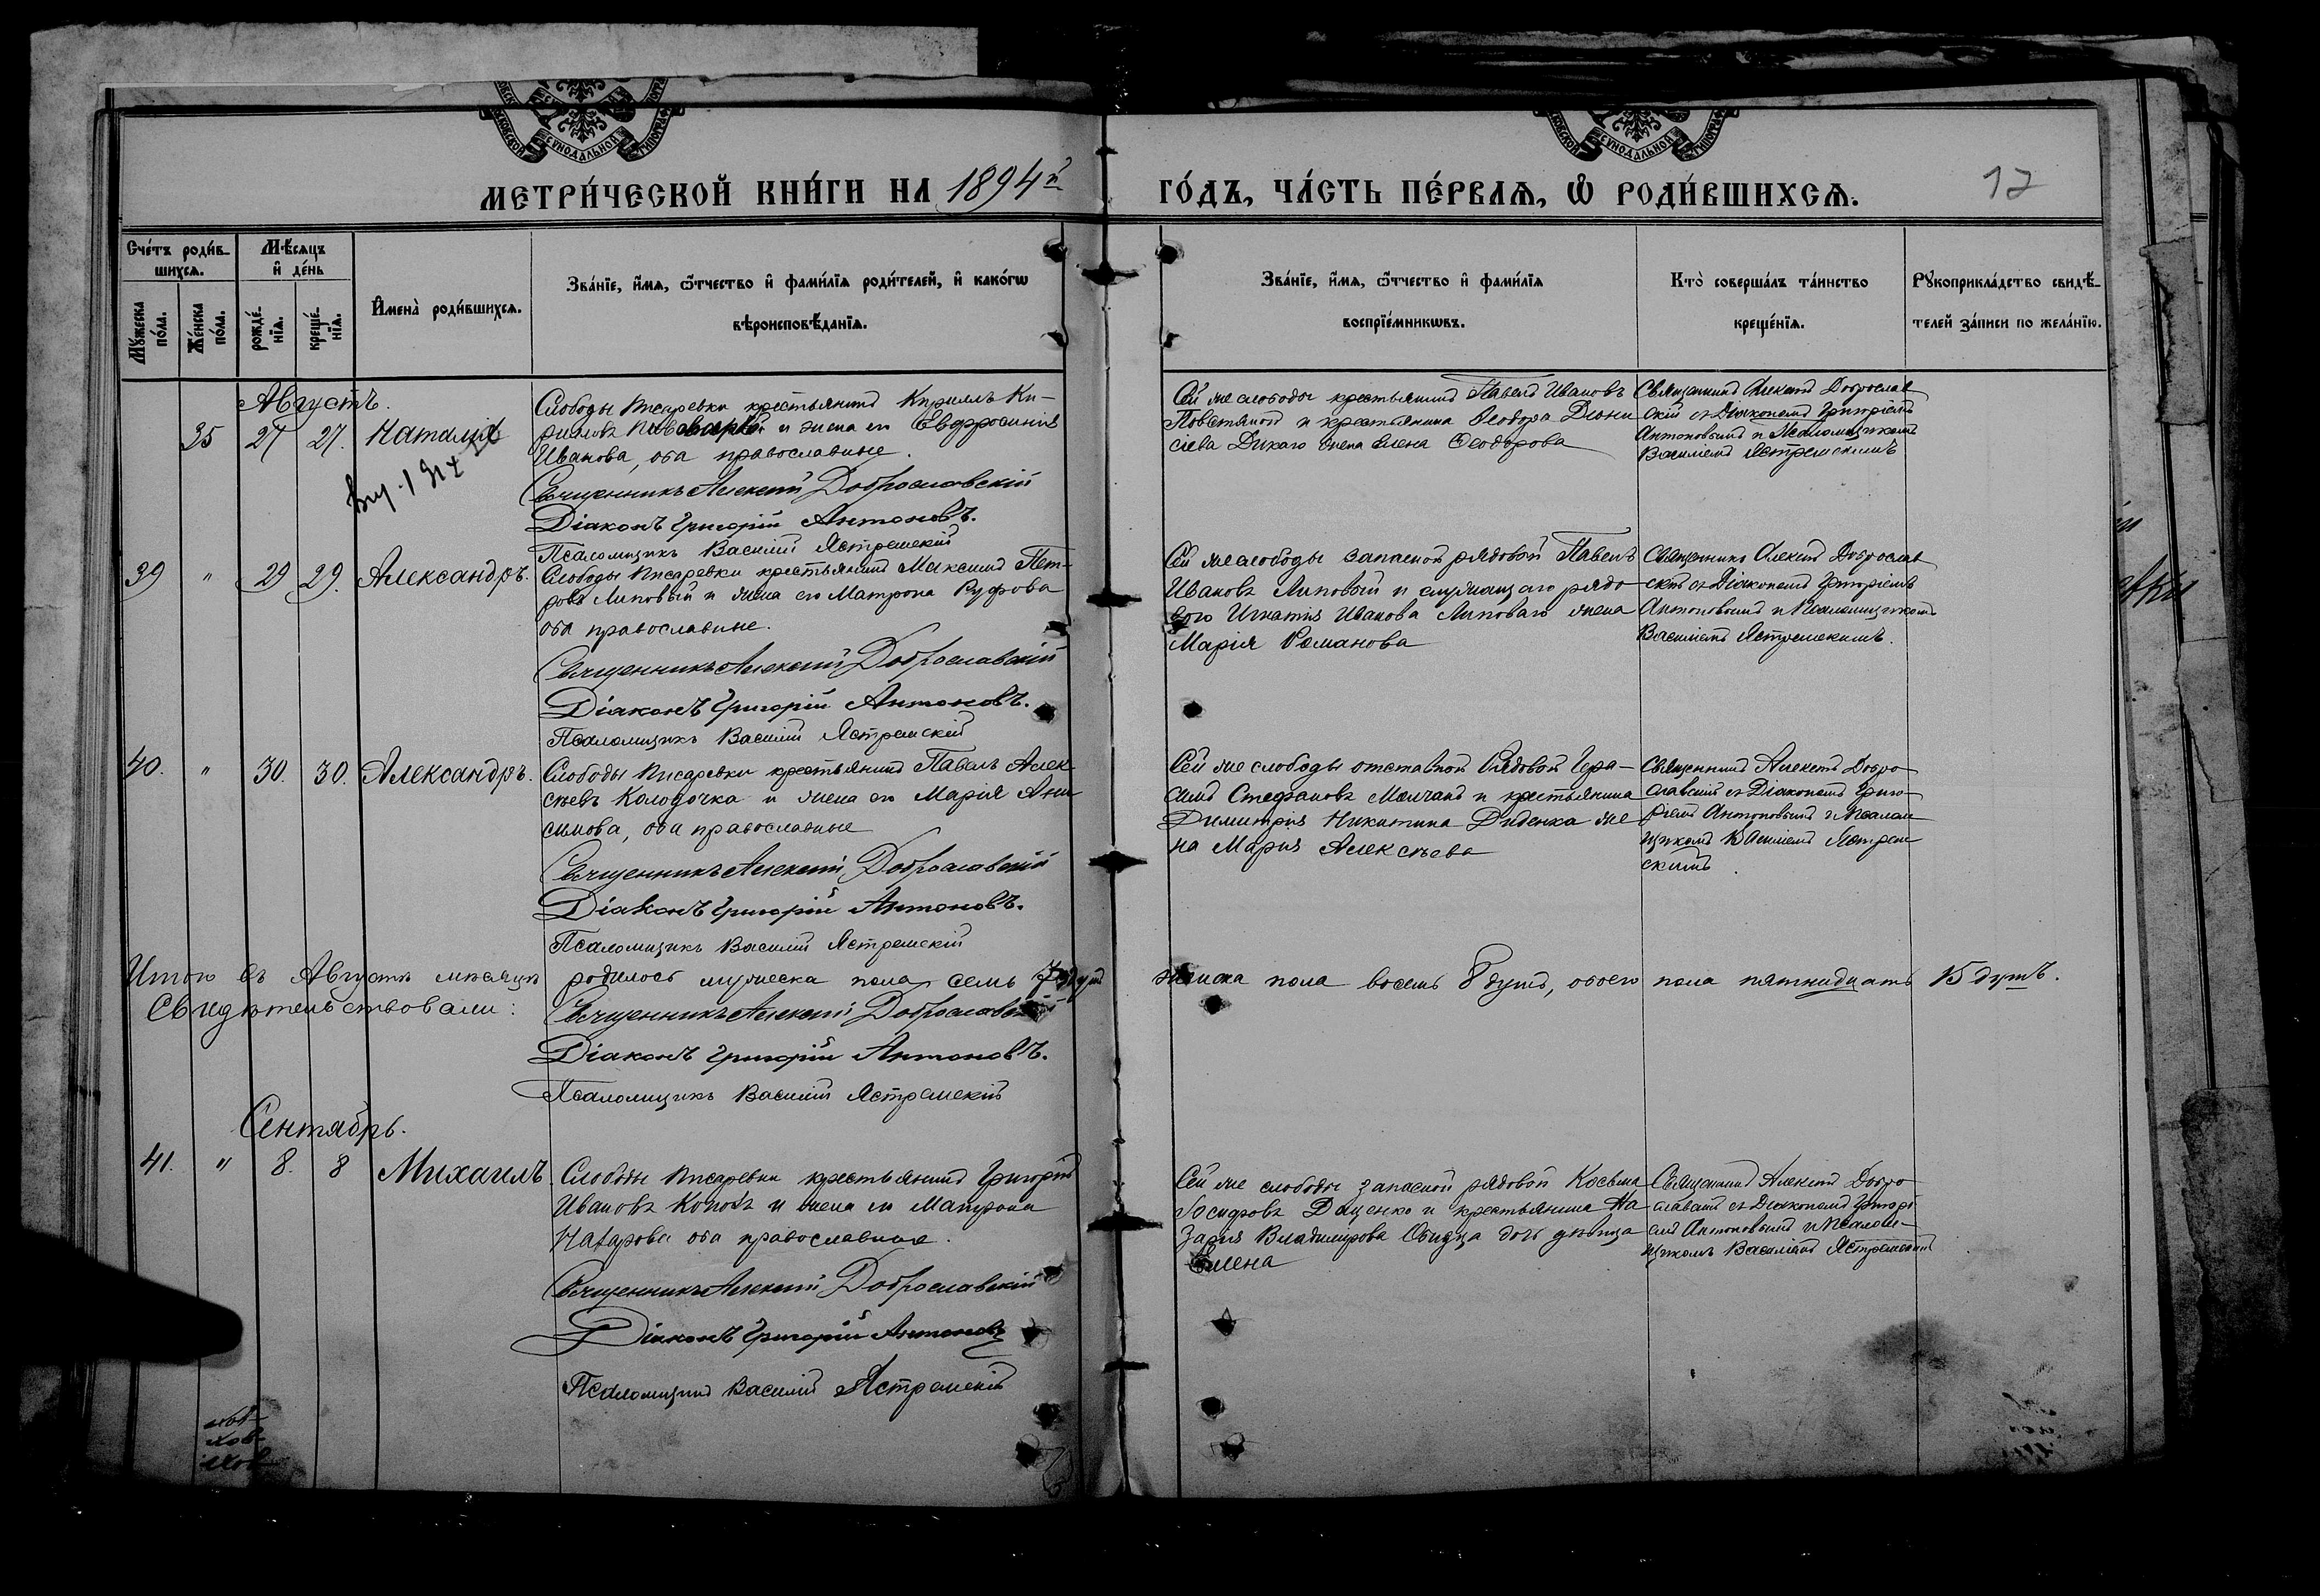 СѴНОДАЛЬНОЙ
СѴНОДАЛЬНОЙ
МЕТРИ́ЧЕСКОЙ КНИ́ГИ НА 1894й
ГО́ДЪ, ЧА́СТЬ ПЕ́РВАѦ, Ѡ РОДИ́ВШИХСѦ.
Сче́тъ роди́в-
шихсѧ.
Мѣ́сѧцъ
и҆ де́нь
Мꙋ́жеска по́ла.
Же́нска по́ла.
рожде́нїѧ.
креще́нїѧ.
И҆мена̀ роди́вшихсѧ.
Зва́нїе, и҆́мѧ, ѻ҆́тчество и҆ фами́лїѧ роди́телей, и҆ како́гѡ
вѣроисповѣ́данїѧ.
Зва́нїе, и҆́мѧ, ѻ҆́тчество и҆ фами́лїѧ
воспрїе́мникѡвъ.
Кто̀ соверша́лъ та́инство
креще́нїѧ.
Рꙋкоприкла́дство свидѣ́-
телей за́писи по жела́нїю.
Августъ.
35 27 27. Наталія
Слободы Писаревки крестьянинъ Кириллъ Ки-
и жена его Евфросинія
Иванова, оба православные.
Священникъ Алексій Доброславскій
Діаконъ Григорій Антоновъ.
Псаломщикъ Василій Ястремскій
Сей же слободы крестьянинъ Павелъ Ивановъ
и крестьянина Ѳеодора Діони
сіева Дикаго жена Елена Ѳеодорова
Священникъ Алексій Доброслав
скій съ Діакономъ Григоріемъ
Антоновымъ и Псаломщикомъ
Василіемъ Ястремскимъ
39 " 29 29. Александръ.
Слободы Писаревки крестьянинъ Максимъ Пет-
ровъ Липовый и жена его Матрона Руфова
оба православные.
Священникъ Алексій Доброславскій
Діаконъ Григорій Антоновъ.
Псаломщикъ Василій Ястремскій
Сей же слободы запасной рядовой Павелъ
Ивановъ Липовый и служащаго рядо-
вого Игнатія Иванова Липоваго жена
Марія Романова
Священникъ Алексій Доброслав
скій съ Діакономъ Григоріемъ
Антоновымъ и Псаломщикомъ
Василіемъ Ястремскимъ.
40. " 30. 30. Александръ.
Слободы Писаревки крестьянинъ Павелъ Алек-
сѣевъ Колодочка и жена его Марія Ани-
симова, оба православные
Священникъ Алексій Доброславскій
Діаконъ Григорій Антоновъ.
Псаломщикъ Василій Ястремскій
Сей же слободы отставной Рядовой Гера-
симъ Стефановъ Молчанъ и крестьянина
Димитрія Никитина Диденка же
на Марія Алексѣева
Священникъ Алексѣй Добро
славскій съ Діакономъ Григо-
ріемъ Антоновымъ и Псалом
щикомъ Василіемъ Ястрем
скимъ.
Итого въ Августѣ мѣсяцѣ родилось мужеска пола семь 7 душъ женска пола восемь 8 душъ, обоего пола пятнадцать 15 душъ.
Свидѣтельствовали:
Священникъ Алексій Доброславскій
Діаконъ Григорій Антоновъ.
Псаломщикъ Василій Ястремскій
Сентябрь.
41. " 8. 8 Михаилъ.
Слободы Писаревки крестьянинъ Григорій
Ивановъ и жена его Матрона
Назарова оба православные.
Священникъ Алексій Доброславскій
Діаконъ Григорій Антоновъ
Псаломщикъ Василій Ястремскій
Сей же слободы запасной рядовой Косьма
Іосифовъ Даценко и крестьянина На
зарія Владимірова дочь дѣвица
Елена
Священникъ Алексій Добро
славскій съ Діакономъ Григорі
емъ Антоновымъ и Псалом-
щикомъ Василіемъ Ястремскимъ